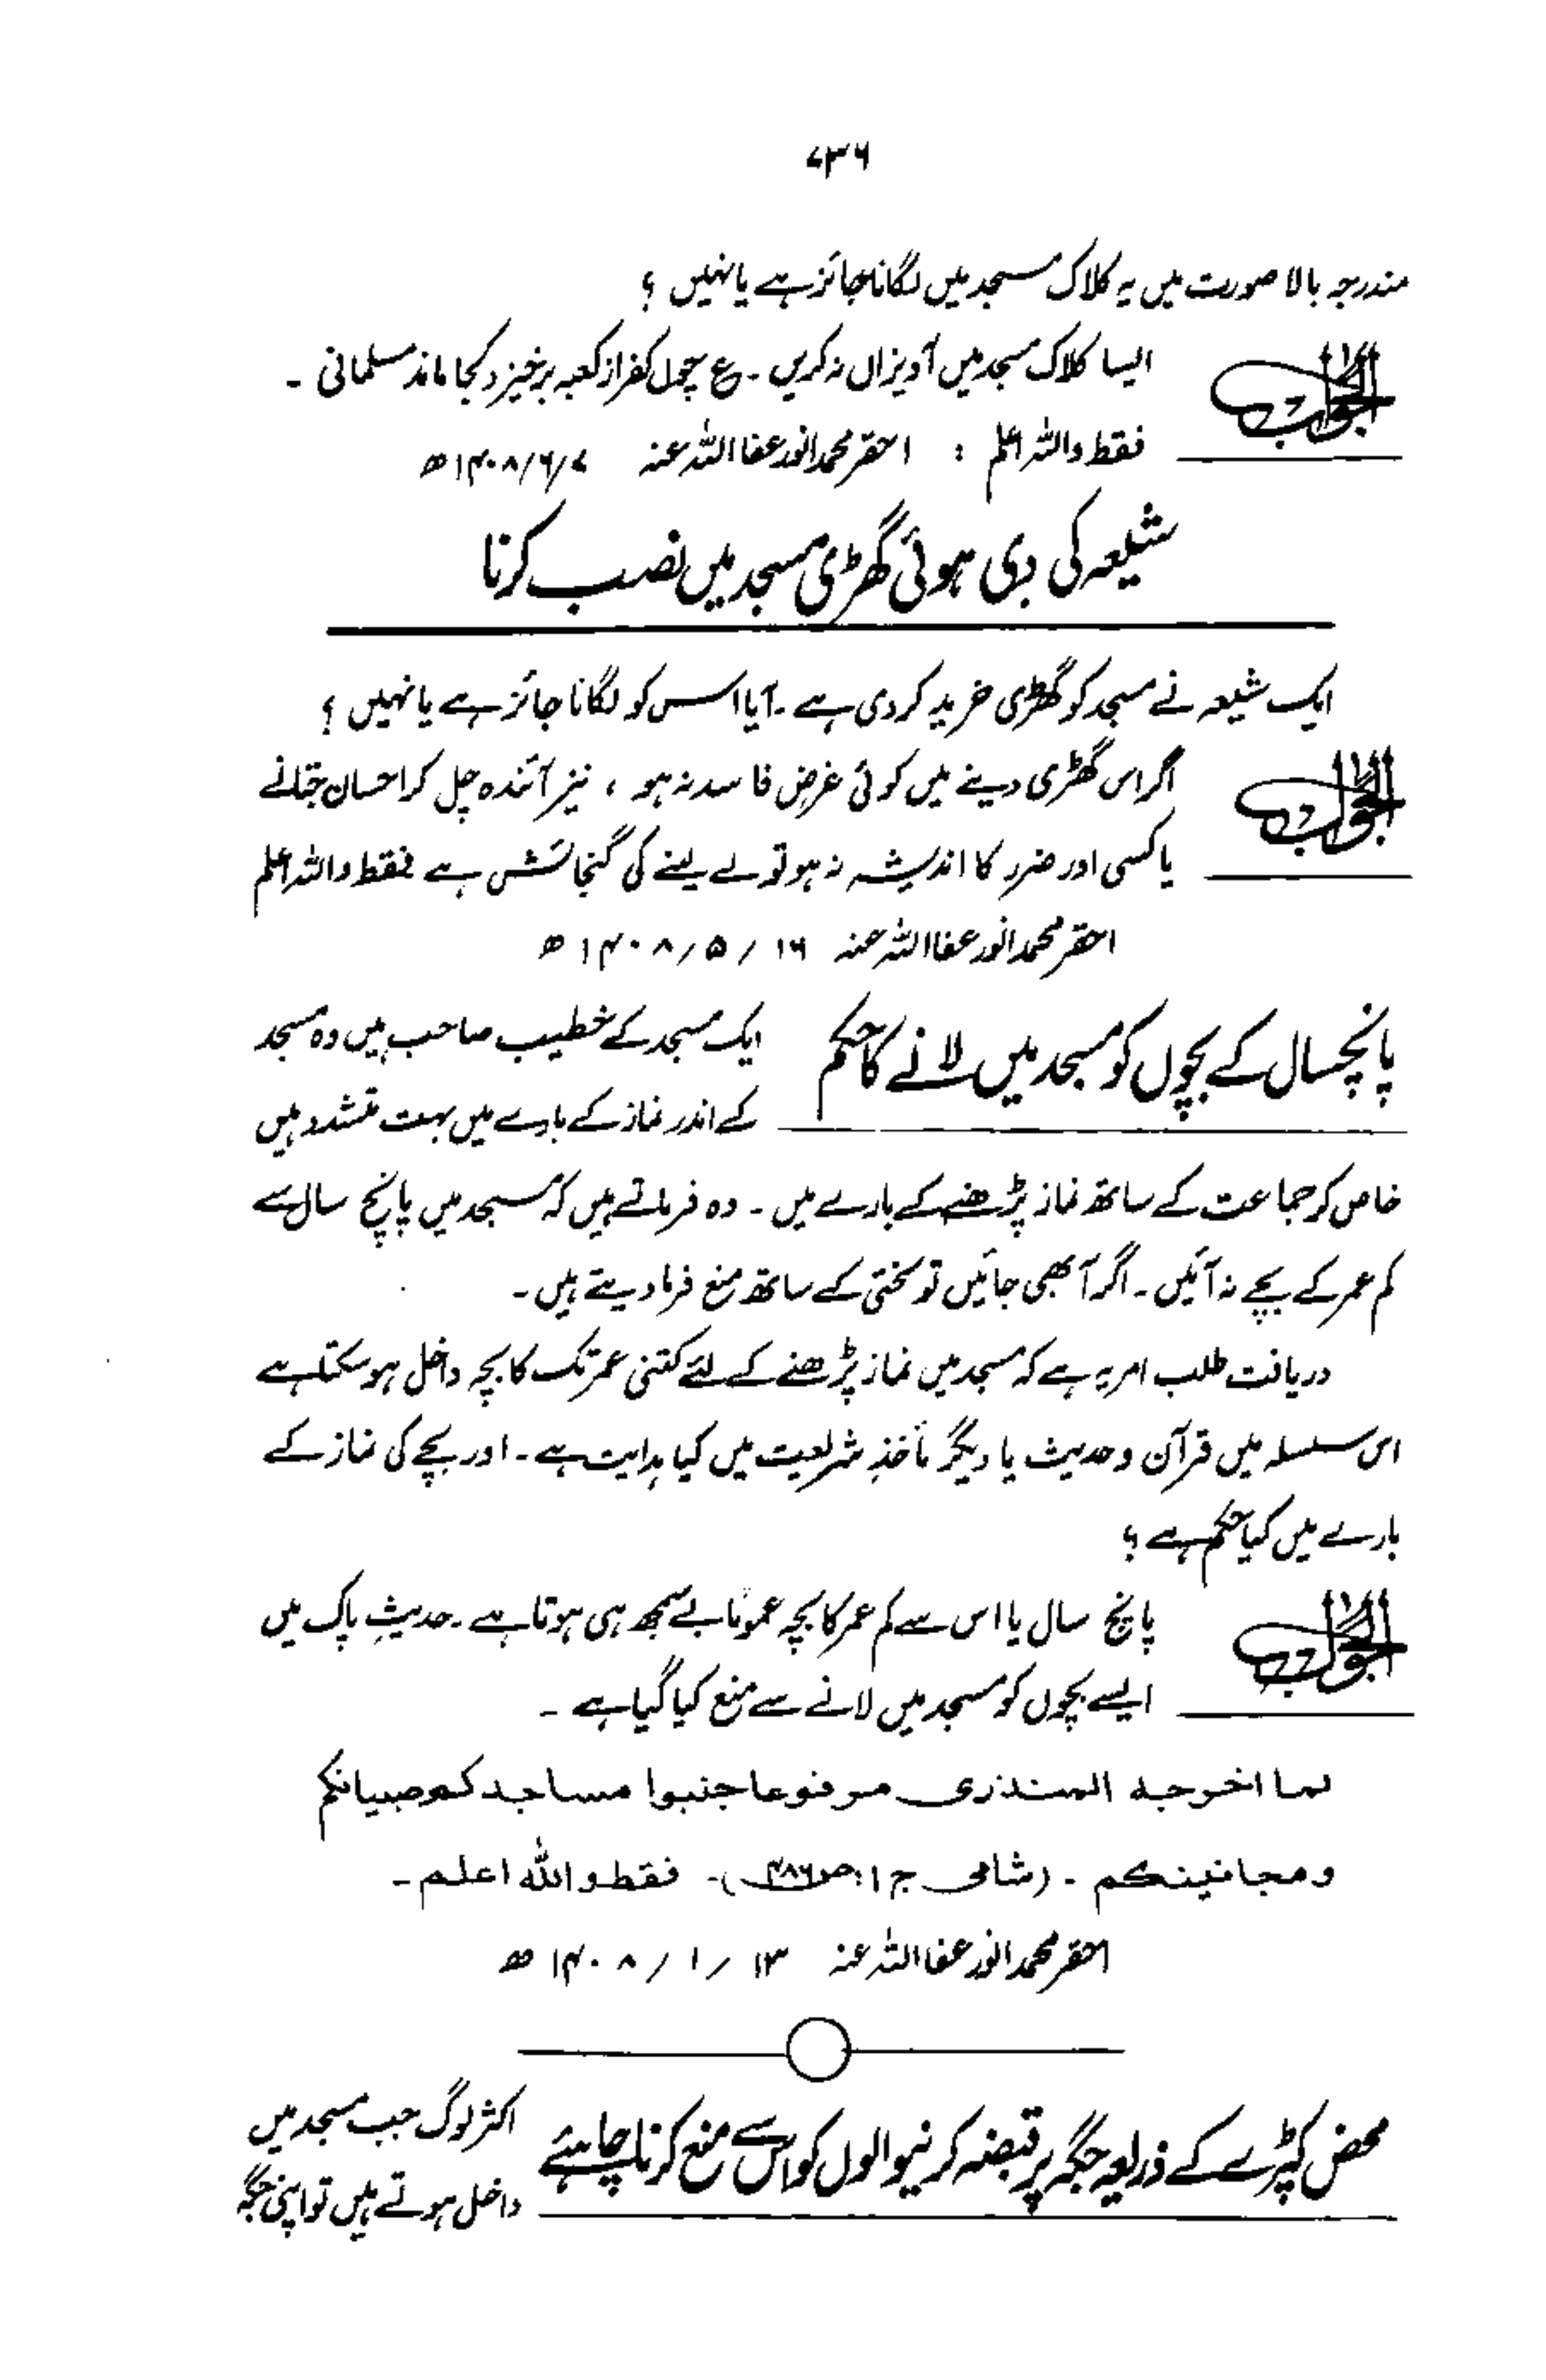 ۷۳۶
مندرجہ بالا صورت میں یہ کلاک مسجد میں لگانا جائز ہے یا نہیں ؟
الجواب
ایسا کلاک مسجد میں آویزاں نہ کریں ۔ ع چوں کفر از کعبہ برخیزد کجا ماند مسلمانی ۔
فقط واللہ اعلم : احقر محمد انور عفا اللہ عنہ ۱۴۰۸/۶/۷ ھ
شیعہ کی دی ہوئی گھڑی مسجد میں نصب کرنا
ایک شیعہ نے مسجد کو گھڑی خرید کر دی ہے ۔ آیا اس کو لگانا جائز ہے یا نہیں ؟
الجواب
اگر اس گھڑی دینے میں کوئی غرض فاسد نہ ہو ، نیز آئندہ چل کر احسان جتلانے
یا کسی اور ضرر کا اندیشہ نہ ہو تو لے لینے کی گنجائش ہے فقط واللہ اعلم
احقر محمد انور عفا اللہ عنہ ۱۴۰۸/۵/۱۶ ھ
پانچسال کے بچوں کو مسجد میں لانے کا حکم
ایک مسجد کے خطیب صاحب ہیں وہ مسجد
کے اندر نماز کے بارے میں بہت متشدد ہیں
خاص کر جماعت کے ساتھ نماز پڑھنے کے بارے میں ۔ وہ فرماتے ہیں کہ مسجد میں پانچ سال سے
کم عمر کے بچے نہ آئیں ۔ اگر آبھی جائیں تو سختی کے ساتھ منع فرما دیتے ہیں ۔
دریافت طلب امر یہ ہے کہ مسجد میں نماز پڑھنے کے لئے کتنی عمر تک کا بچہ داخل ہوسکتا ہے
اس سلسلہ میں قرآن و حدیث یا دیگر مأخذِ شریعت میں کیا ہدایت ہے ۔ اور بچے کی نماز کے
بارے میں کیا حکم ہے ؟
الجواب
پانچ سال یا اس سے کم عمر کا بچہ عموماً بے سمجھ ہی ہوتا ہے ۔ حدیثِ پاک میں
ایسے بچوں کو مسجد میں لانے سے منع کیا گیا ہے ۔
لما اخرجه المنذری مرفوعا جنبوا مساجدکم صبیانکم
ومجانینکم ۔ (شامی ج ۱: ص۴۸۶)۔ فقط واللہ اعلم ۔
احقر محمد انور عفا اللہ عنہ ۱۴۰۸/۱/۱۳ ھ
محض کپڑے کے ذریعہ جگہ پر قبضہ کرنیوالوں کو اس سے منع کرنا چاہئے
اکثر لوگ جب مسجد میں
داخل ہوتے ہیں تو اپنی جگہ